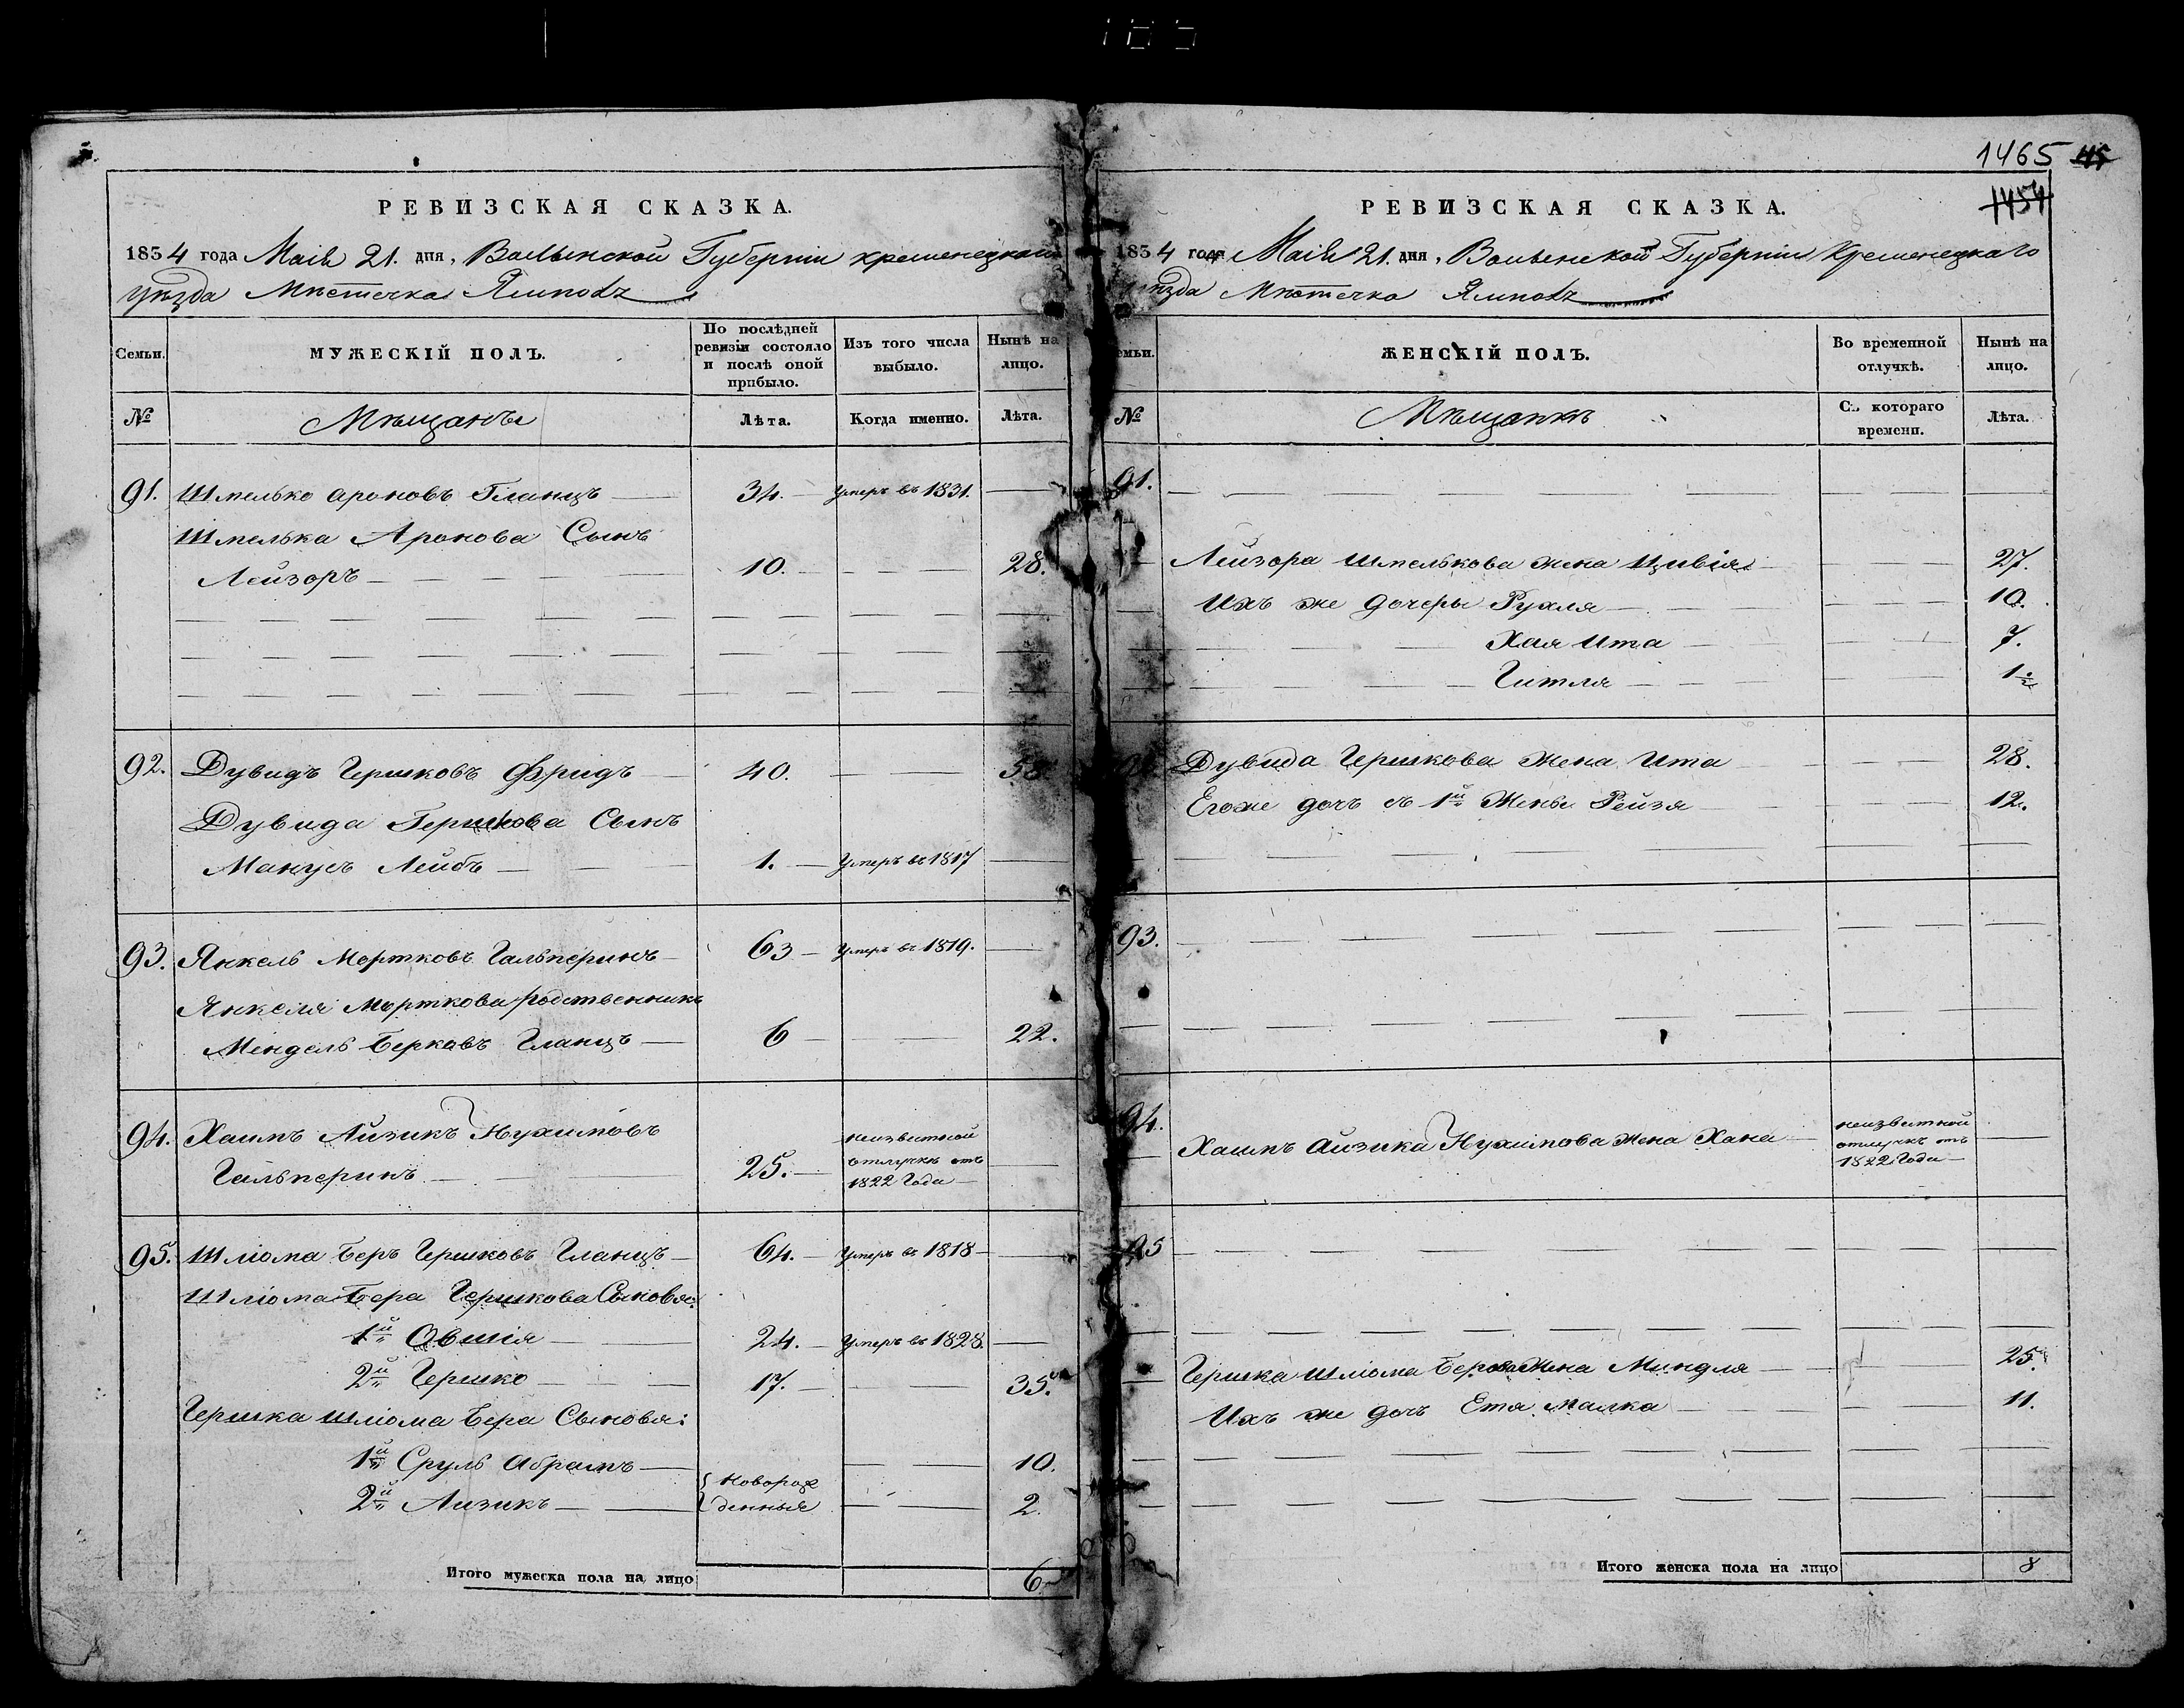 185
1465 115
1454
РЕВИЗСКАЯ СКАЗКА.
1834 года Маія 21. дня, Волынской Губерніи кременецкаго
уѣзда Мѣстечка Ямполь
Семьи.
МУЖЕСКІЙ ПОЛЪ.
По послѣдней ревизіи состояло и послѣ оной прибыло.
Изъ того числа выбыло.
Нынѣ на лицо.
№
Мѣщанъ
Лѣта.
Когда именно.
Лѣта.
91. Шмелько ароновъ Гланцъ 34. умеръ въ 1831.
Шмелька Аронова Сынъ
Лейзоръ 10. 28.
92. Дувидъ Гершковъ Фридъ 40. 58
Дувида Гершкова Сынъ
Манусъ Лейбъ 1. умеръ въ 1817
93. Янкель Мортковъ Гальперинъ 63 умеръ въ 1819.
Янкеля Морткова родственникъ
Мендель Берковъ Гланцъ 6 22.
94. Хаимъ Айзикъ Нухимовъ
Гальперинъ 25. неизвѣстной
отлучкѣ отъ
1822 Года
95. Шліома Беръ Гершковъ Гланцъ 64. умеръ въ 1818
Шліома Бера Гершкова Сыновя:
1й Овшія 24. умеръ въ 1828.
2й Гершко 17. 35.
Гершка Шліома Бера Сыновя:
1й Сруль Абрамъ 10.
новорож
2й Айзикъ денныя 2.
Итого мужеска пола на лицо 6.
РЕВИЗСКАЯ СКАЗКА.
1834 года Маія 21. дня, Волынской Губерніи Кременецкаго
уѣзда Мѣстечка Ямполь
Семьи.
ЖЕНСКІЙ ПОЛЪ.
Во временной отлучкѣ.
Нынѣ на лицо.
№
Мѣщанкъ
Съ котораго времени.
Лѣта.
91.
Лейзора Шмелькова жена Цивія 27.
Ихъ же дочеры Рухля 10.
Хая Ита 7.
Гитля 1½
Дувида Гершкова Жена Ита 28.
Егоже дочъ съ 1й Жены Рейзя 12.
93.
94. Хаимъ Айзика Нухимова жена Хана неизвѣстной
отлучкѣ отъ
1822 Года
95
Гершка Шліома Берова Жена Миндля 25.
Ихъ же дочъ Етя Малка 11.
Итого женска пола на лицо 8